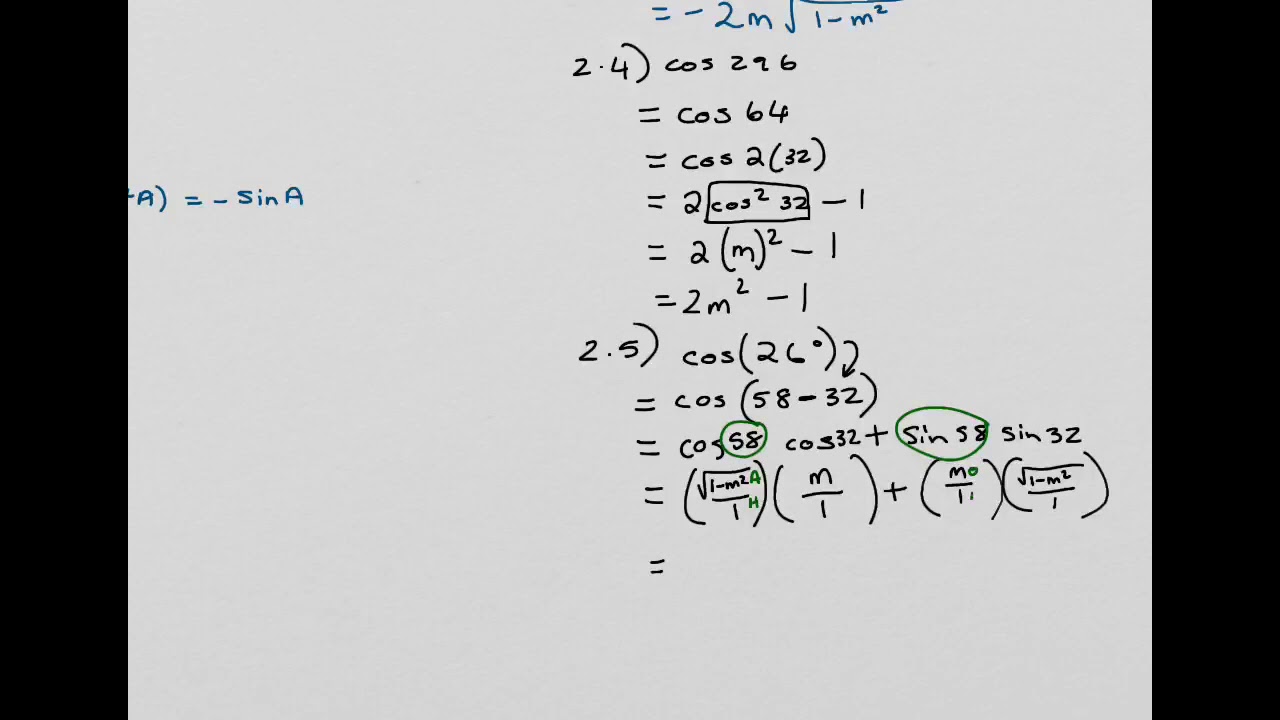 = - 2m √(1-m²)
2.4) cos 296
= cos 64
= cos 2(32)
+A) = - sin A
= 2 cos² 32 - 1
= 2 (m)² - 1
= 2m² - 1
2.5) cos(26°)
= cos (58 - 32)
= cos 58 cos 32 + sin 58 sin 32
= (√(1-m²) A / 1 H) (m / 1) + (m O / 1 1) (√(1-m²) / 1)
=